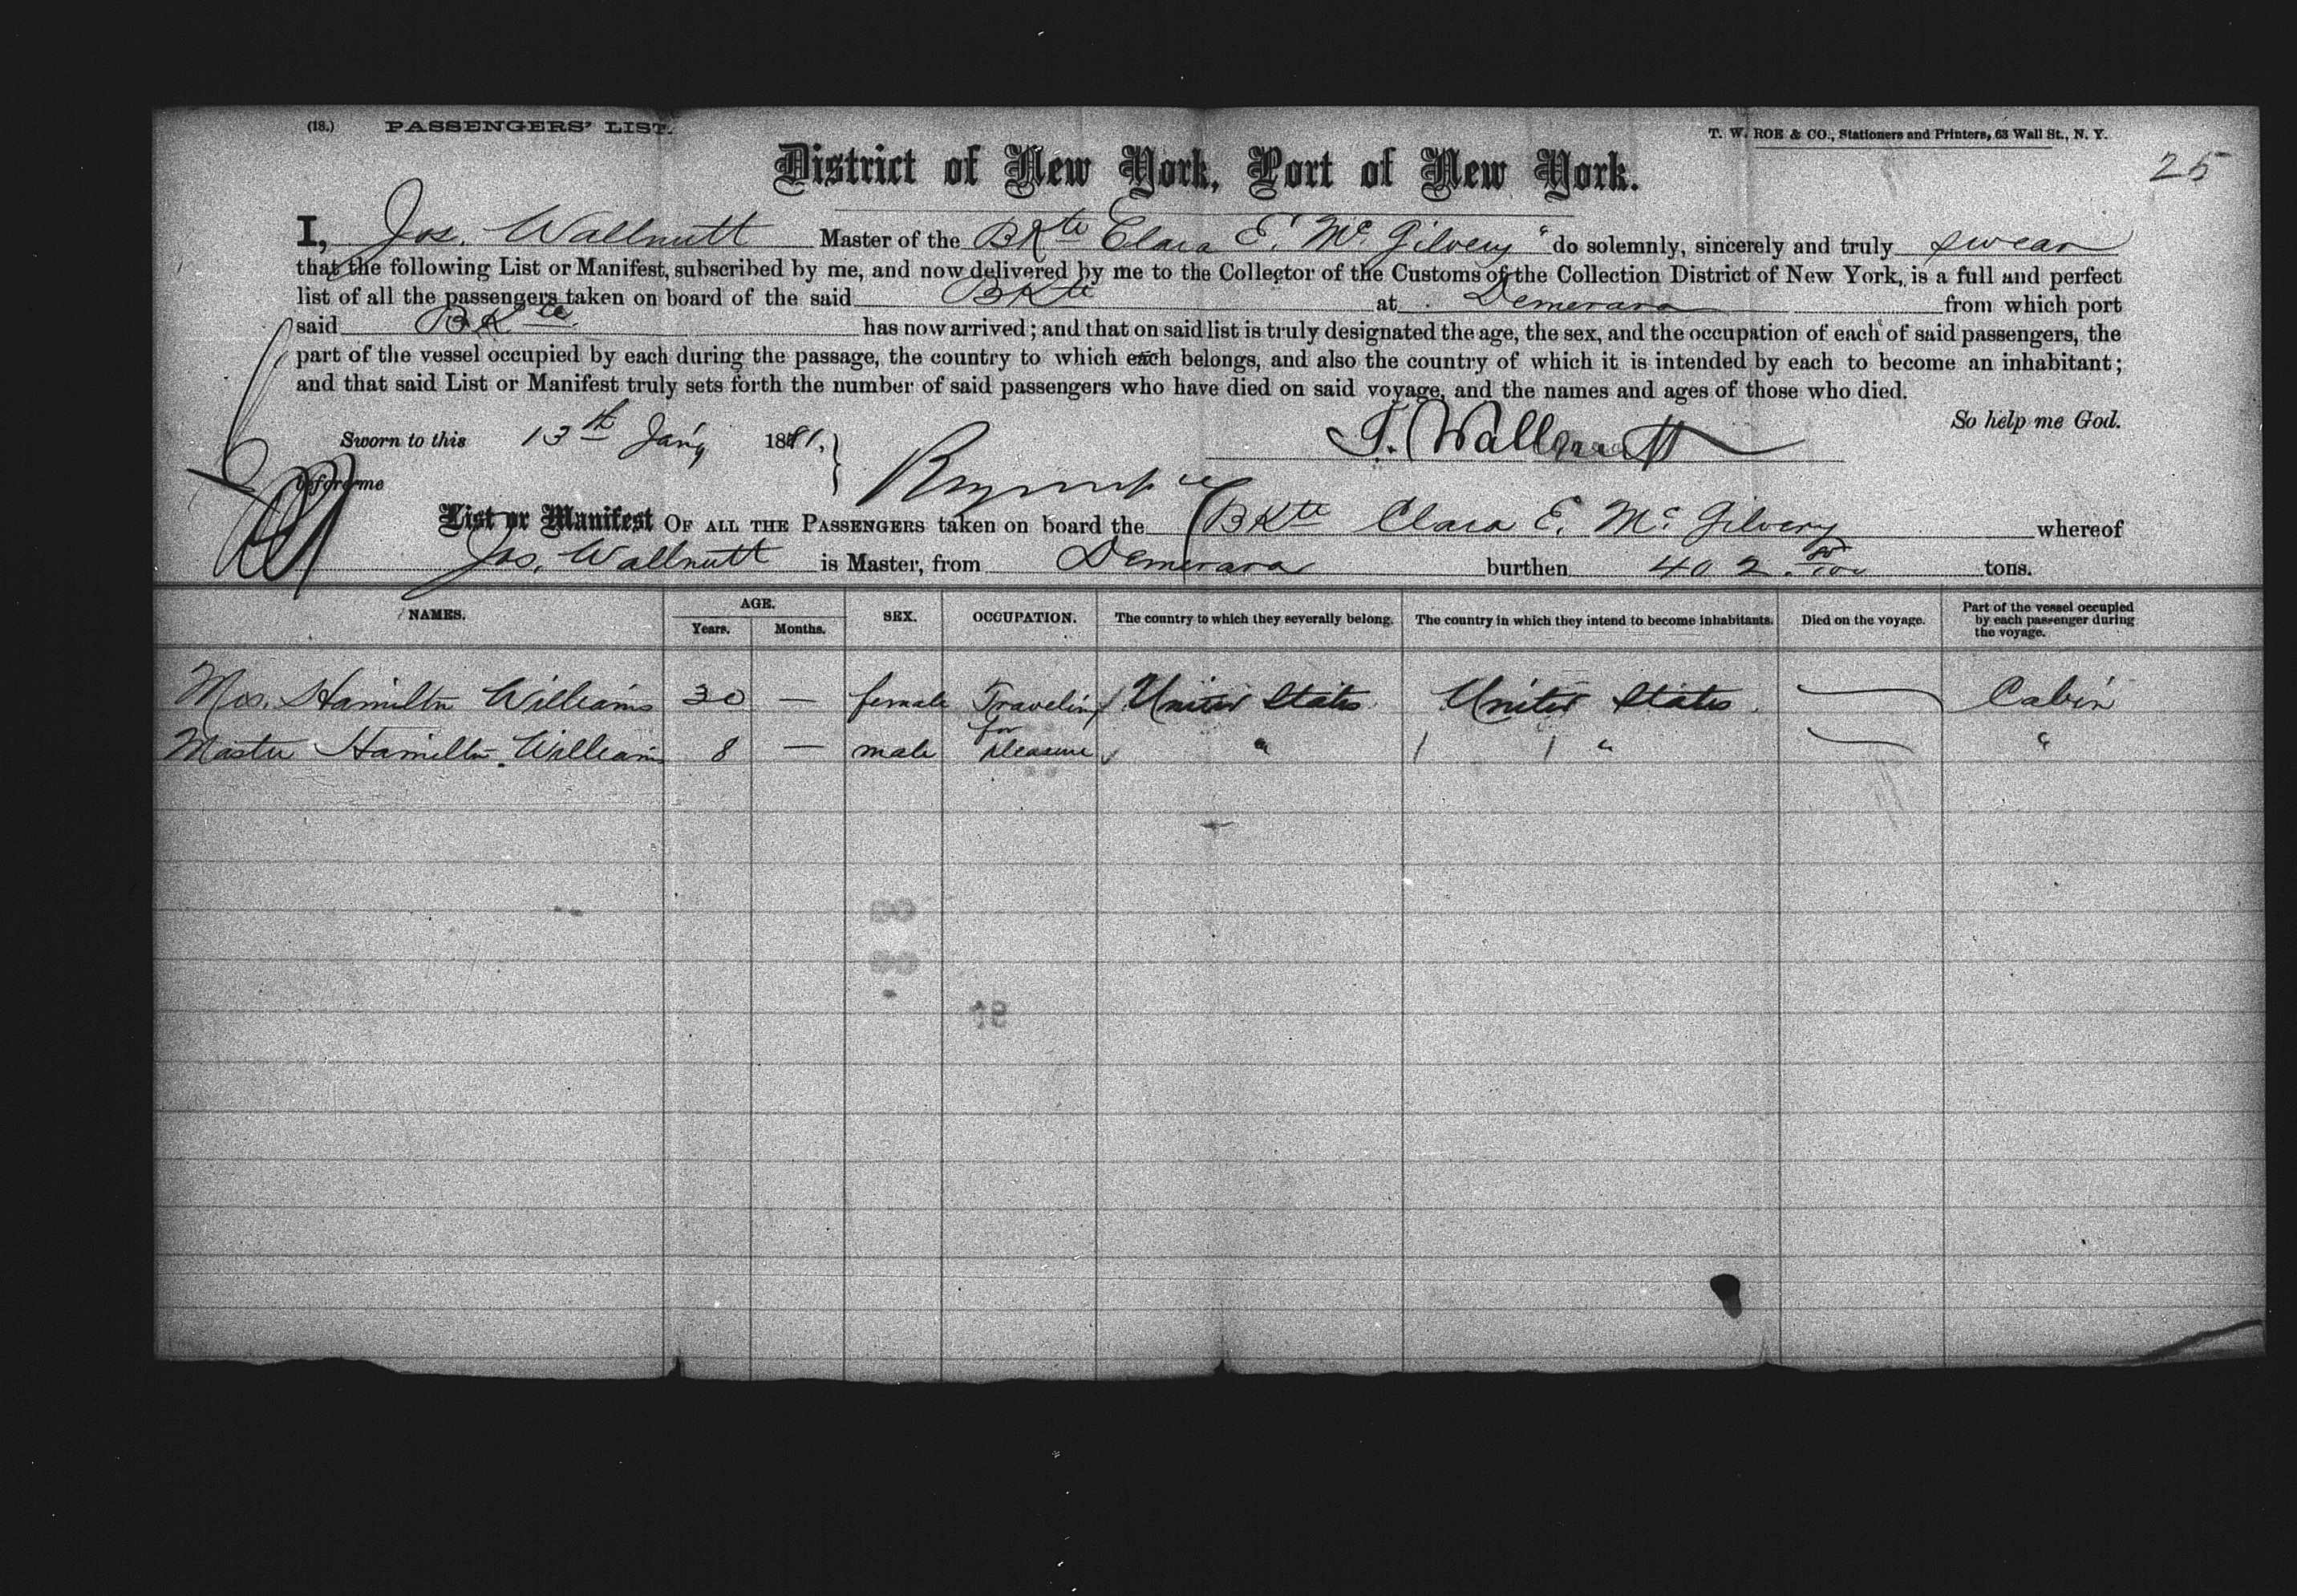 (18.) PASSENGERS' LIST.
T. W. ROE & CO., Stationers and Printers, 63 Wall St., N. Y.
25
District of New York, Port of New York.
I, Jos. Wallnutt Master of the BKte Clara E. Mc Gilvery" do solemnly, sincerely and truly swear
that the following List or Manifest, subscribed by me, and now delivered by me to the Collector of the Customs of the Collection District of New York, is a full and perfect
list of all the passengers taken on board of the said BKte at Demerara from which port
said BKte has now arrived; and that on said list is truly designated the age, the sex, and the occupation of each of said passengers, the
part of the vessel occupied by each during the passage, the country to which each belongs, and also the country of which it is intended by each to become an inhabitant;
and that said List or Manifest truly sets forth the number of said passengers who have died on said voyage, and the names and ages of those who died.
So help me God.
Sworn to this 13th Jan'y 1881. J. Wallnutt
before me
List or Manifest OF ALL THE PASSENGERS taken on board the BKte Clara E. Mc Gilvery whereof
Jos. Wallnutt is Master, from Demerara burthen 402. tons.
NAMES. AGE. SEX. OCCUPATION. The country to which they severally belong. The country in which they intend to become inhabitants. Died on the voyage. Part of the vessel occupied by each passenger during the voyage.
Years. Months.
Mrs. Hamilton Williams 30 — female Traveling United States United States. — Cabin
for
Master Hamilton Williams 8 — male pleasure " " — "